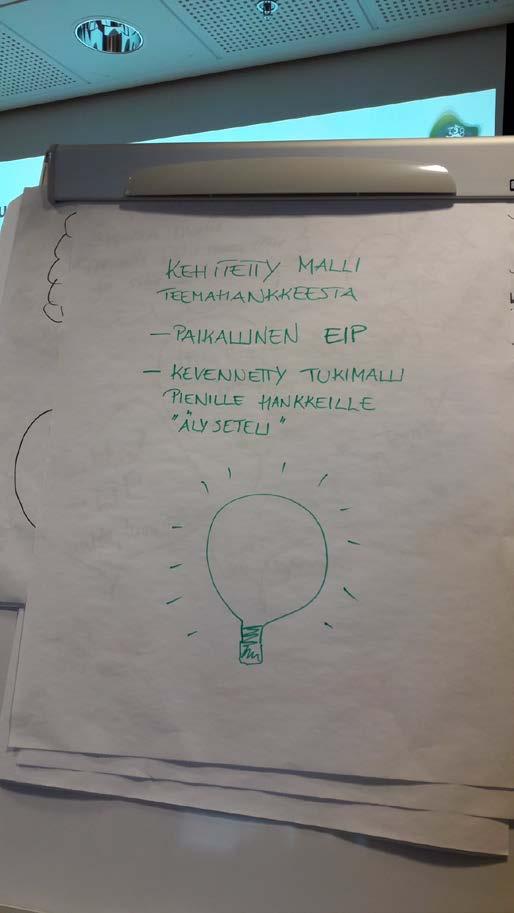 KEHITETTY MALLI
TEEMAHANKKEESTA
– PAIKALLINEN EIP
– KEVENNETTY TUKIMALLI
PIENILLE HANKKEILLE
"ÄLYSETELI"